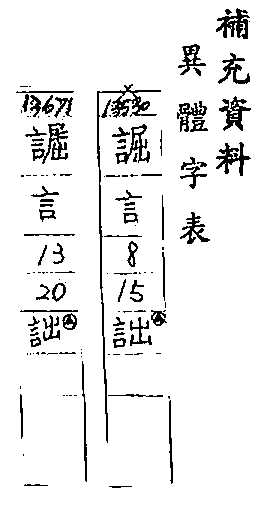 補充資料
異體字表
13530
誳
言
8
15
詘
13671
言
13
20
詘